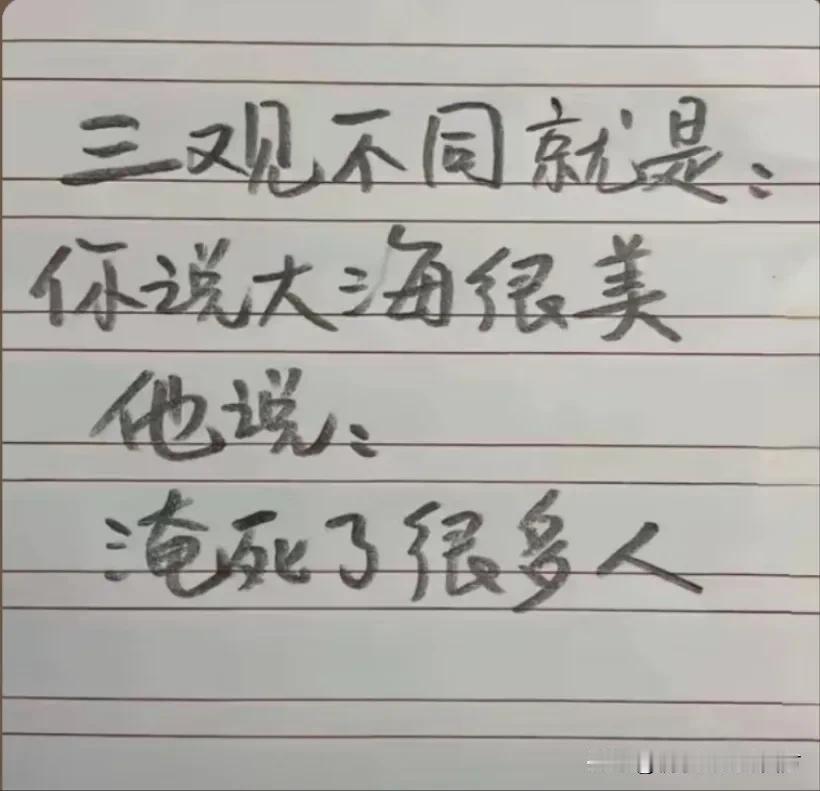 三观不同就是：
你说大海很美
他说：
淹死了很多人